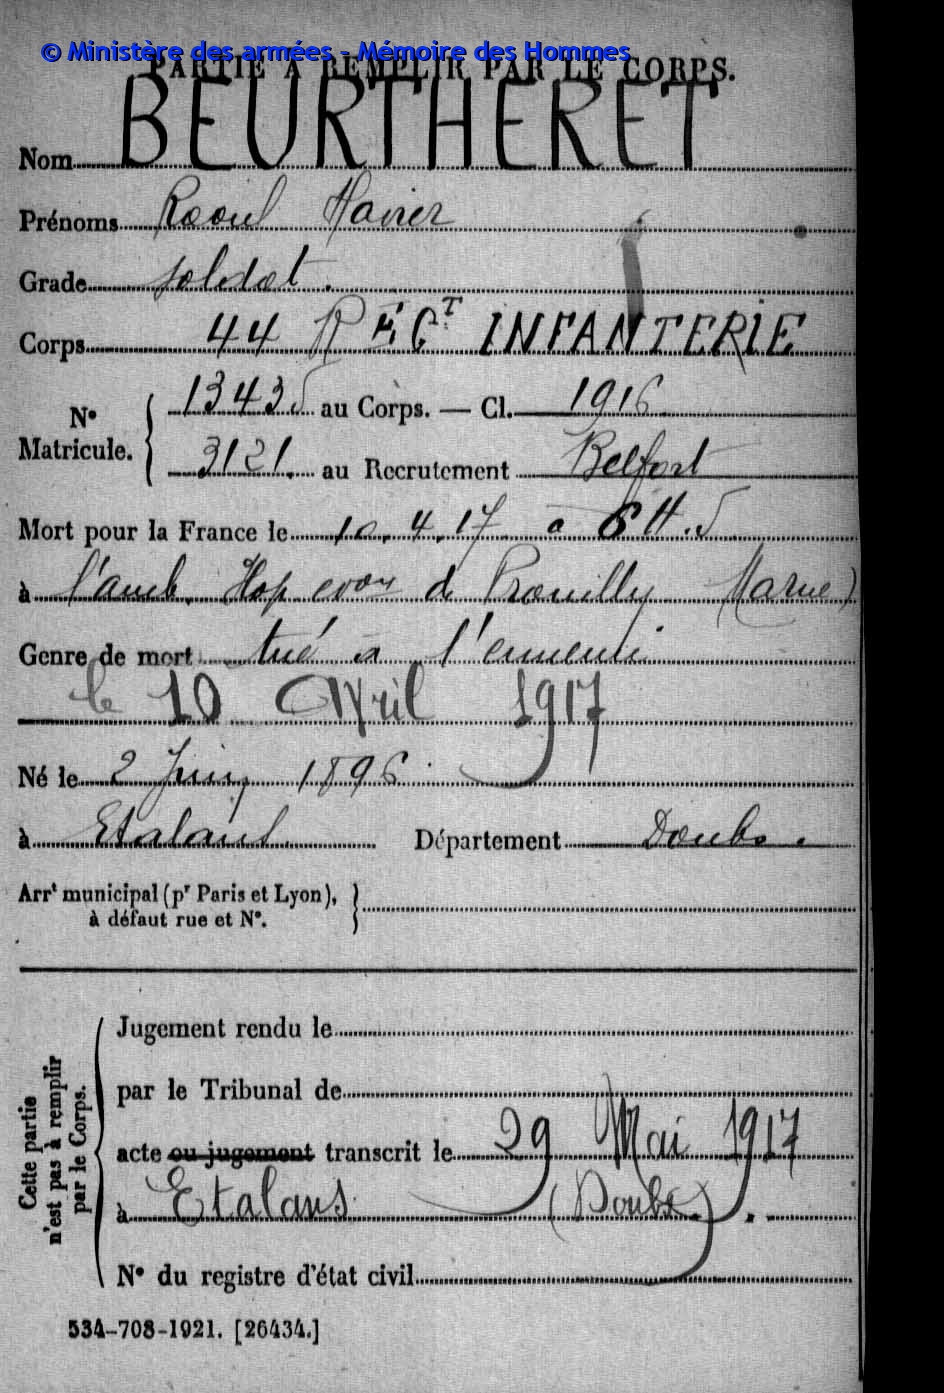 © Ministère des armées - Mémoire des Hommes
PARTIE À REMPLIR PAR LE CORPS.
Nom BEURTHERET
Prénoms Raoul Xavier
Grade soldat.
Corps 44 RÉGT INFANTERIE
No Matricule. 13435 au Corps. — Cl. 1916
3121. au Recrutement Belfort
Mort pour la France le 10.4.17 à 6 H.5
à l'amb. Hop evon de Prouilly Marne)
Genre de mort tué à l'ennemi
le 10 Avril 1917
Né le 2 Juin 1896
à Etalans Département Doubs.
Arrt municipal (pr Paris et Lyon),
à défaut rue et No.
Cette partie n'est pas à remplir par le Corps.
Jugement rendu le
par le Tribunal de
acte ou jugement transcrit le 29 Mai 1917
à Etalans (Doubs).
No du registre d'état civil
534-708-1921. [26434.]